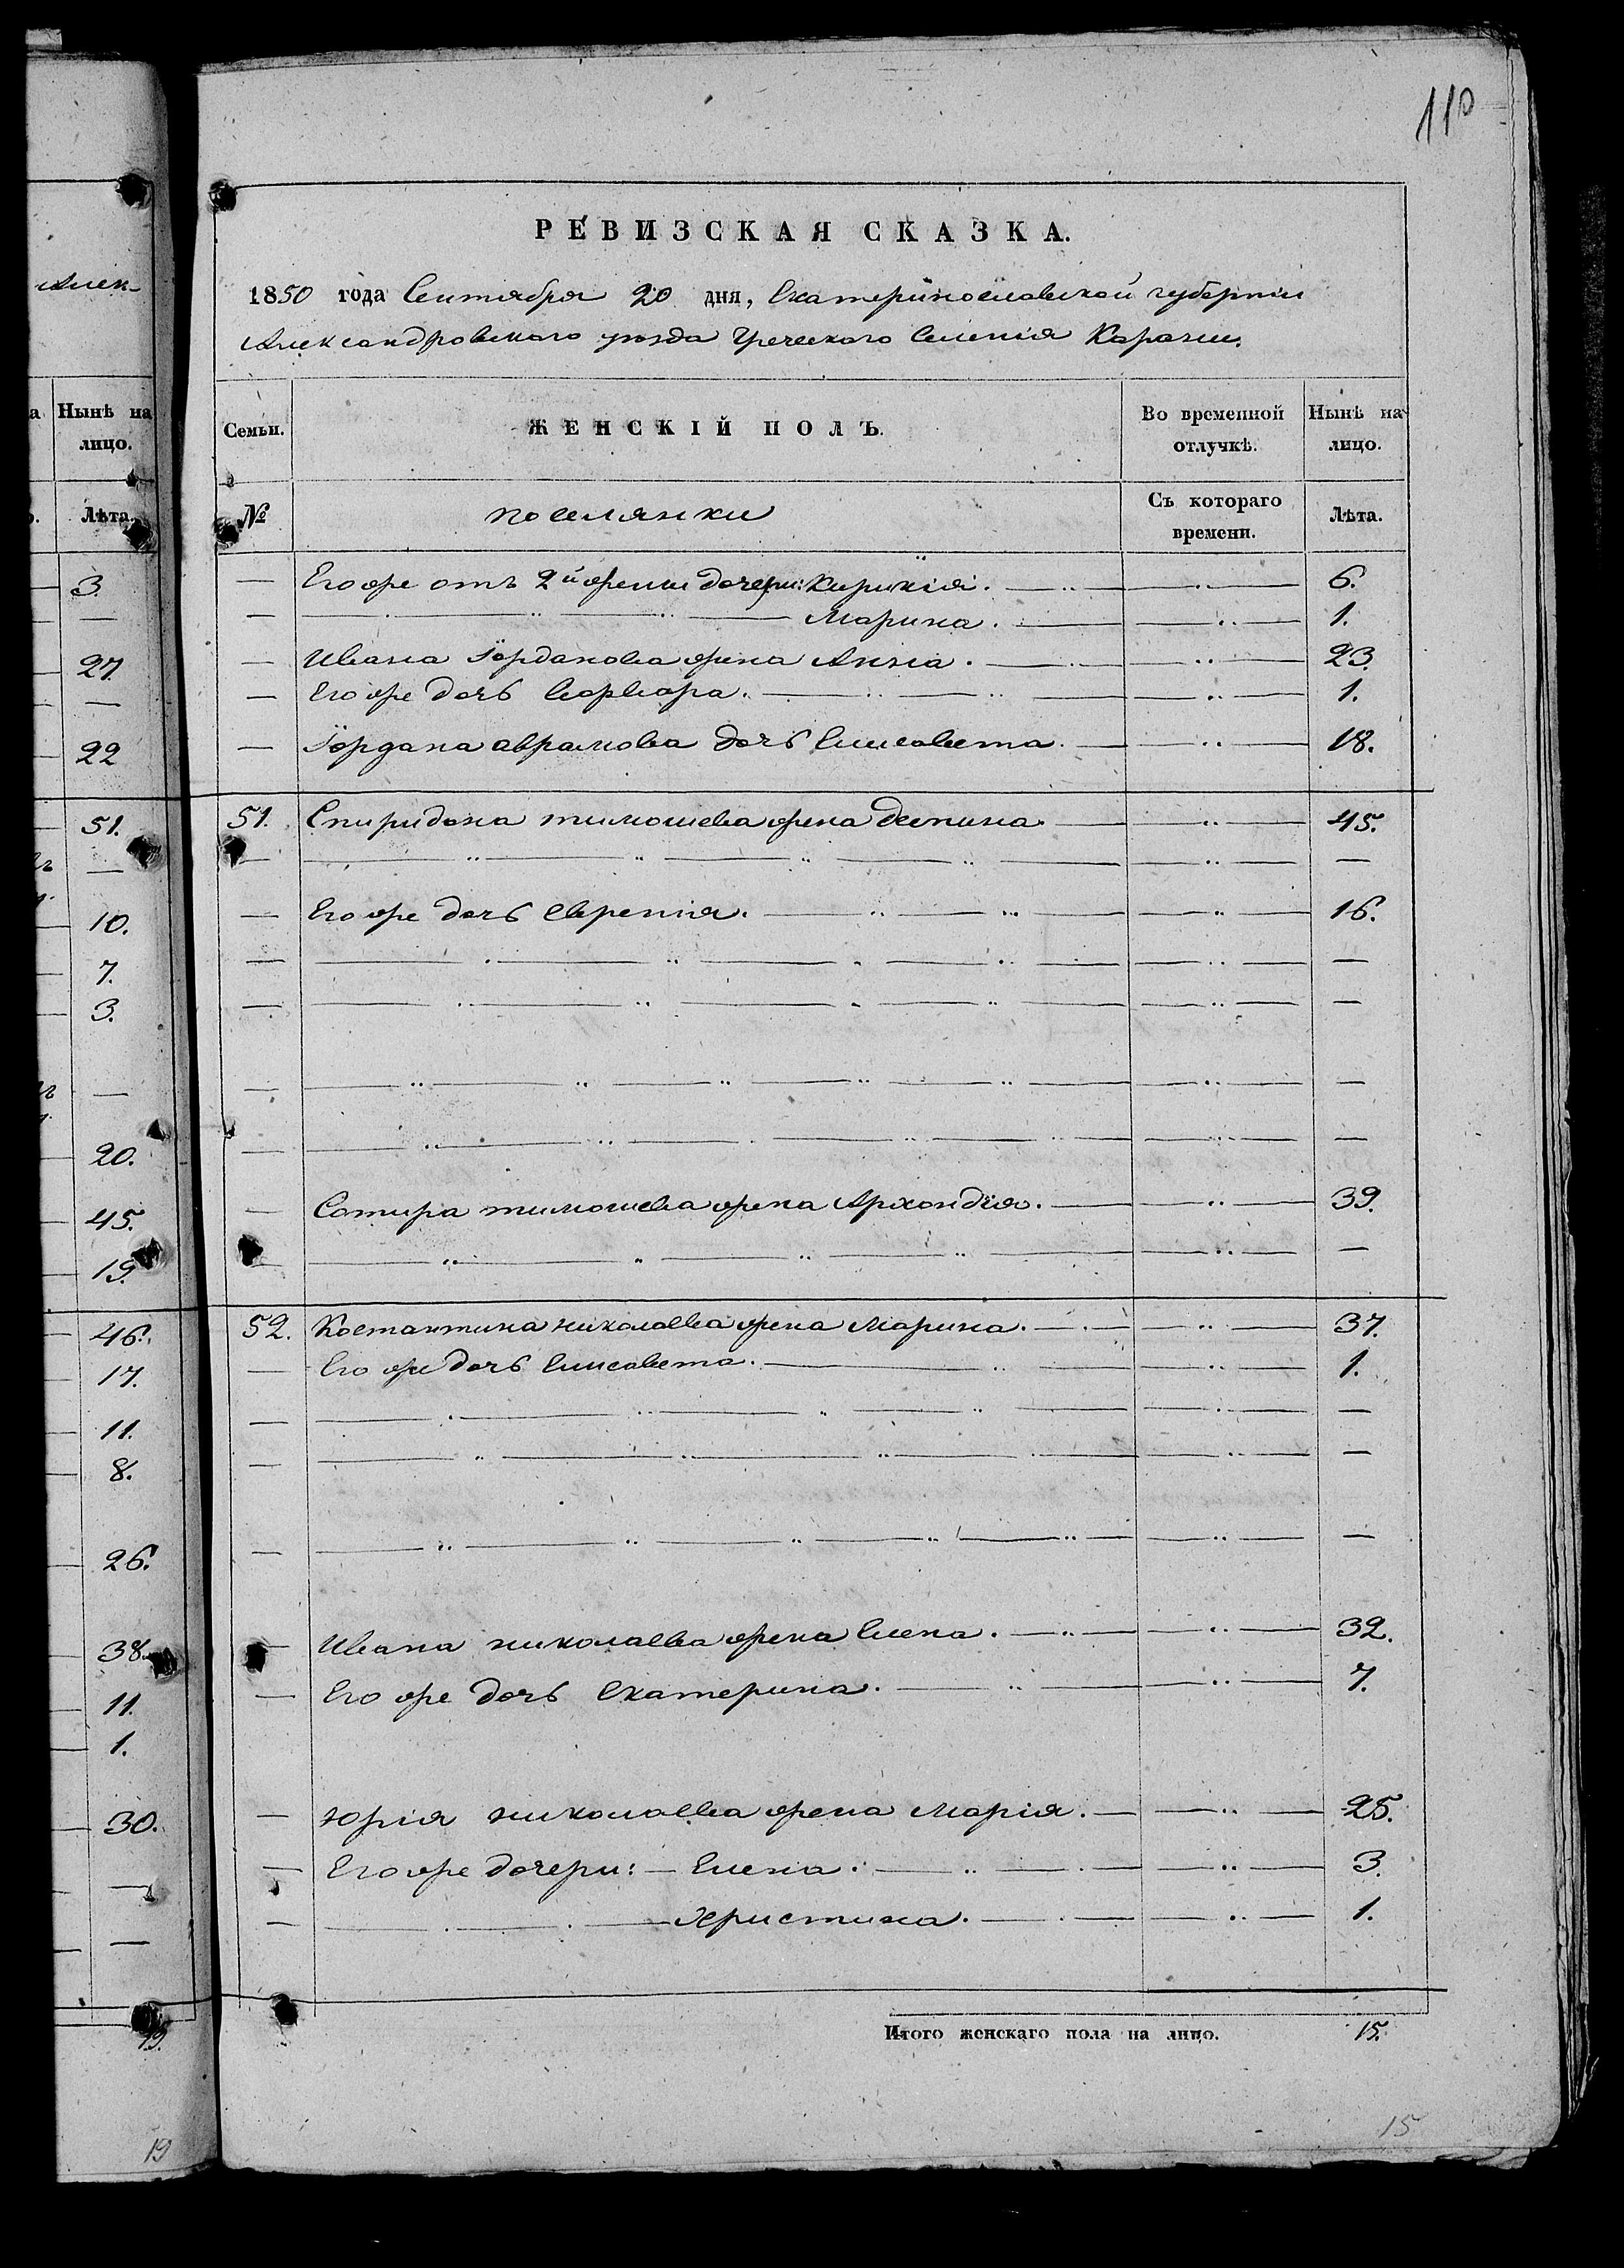 110
РЕВИЗСКАЯ СКАЗКА.
1850 года Сентября 20 дня, Екатеринославской губернии
Александровскаго уезда Греческаго Селенія Карачи.
Алек-
Семьи. ЖЕНСКІЙ ПОЛЪ. Во временной отлучкѣ. Нынѣ на лицо.
№ поселянки Съ котораго времени. Лѣта.
а Нынѣ на лицо.
Лѣта.
— Его же отъ 2й жены дочери: Кирикія. 6.
— Марина. 1.
— Ивана Іорданова жена Анна. 23.
— Его же дочь Варвара. 1.
— Іордана аврамова дочь Елисавета. 18.
51. Спиридона тимошева жена деспина 45.
— —
— Его же дочь Евгенія. 16.
— —
— —
— —
— —
— Сотира тимошева жена Архондія. 39.
— —
52. Костантина николаева жена Марина. 37.
— Его же дочь Елисавета. 1.
— —
— —
— —
— Ивана николаева жена Елена. 32.
— Его же дочь Екатерина. 7.
— Юрія николаева жена Марія. 25.
— Его же дочери: Елена. 3.
— Христина. 1.
Итого женскаго пола на лицо. 15.
15
3.
—
27.
—
22
51.
—
10.
7.
3.
—
20.
45.
19.
46.
17.
11.
8.
26.
38.
11.
1.
30.
—
—
19.
19